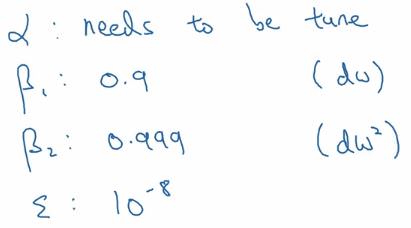 α : needs to be tune
β₁ : 0.9 (dw)
β₂ : 0.999 (dw²)
ε : 10⁻⁸